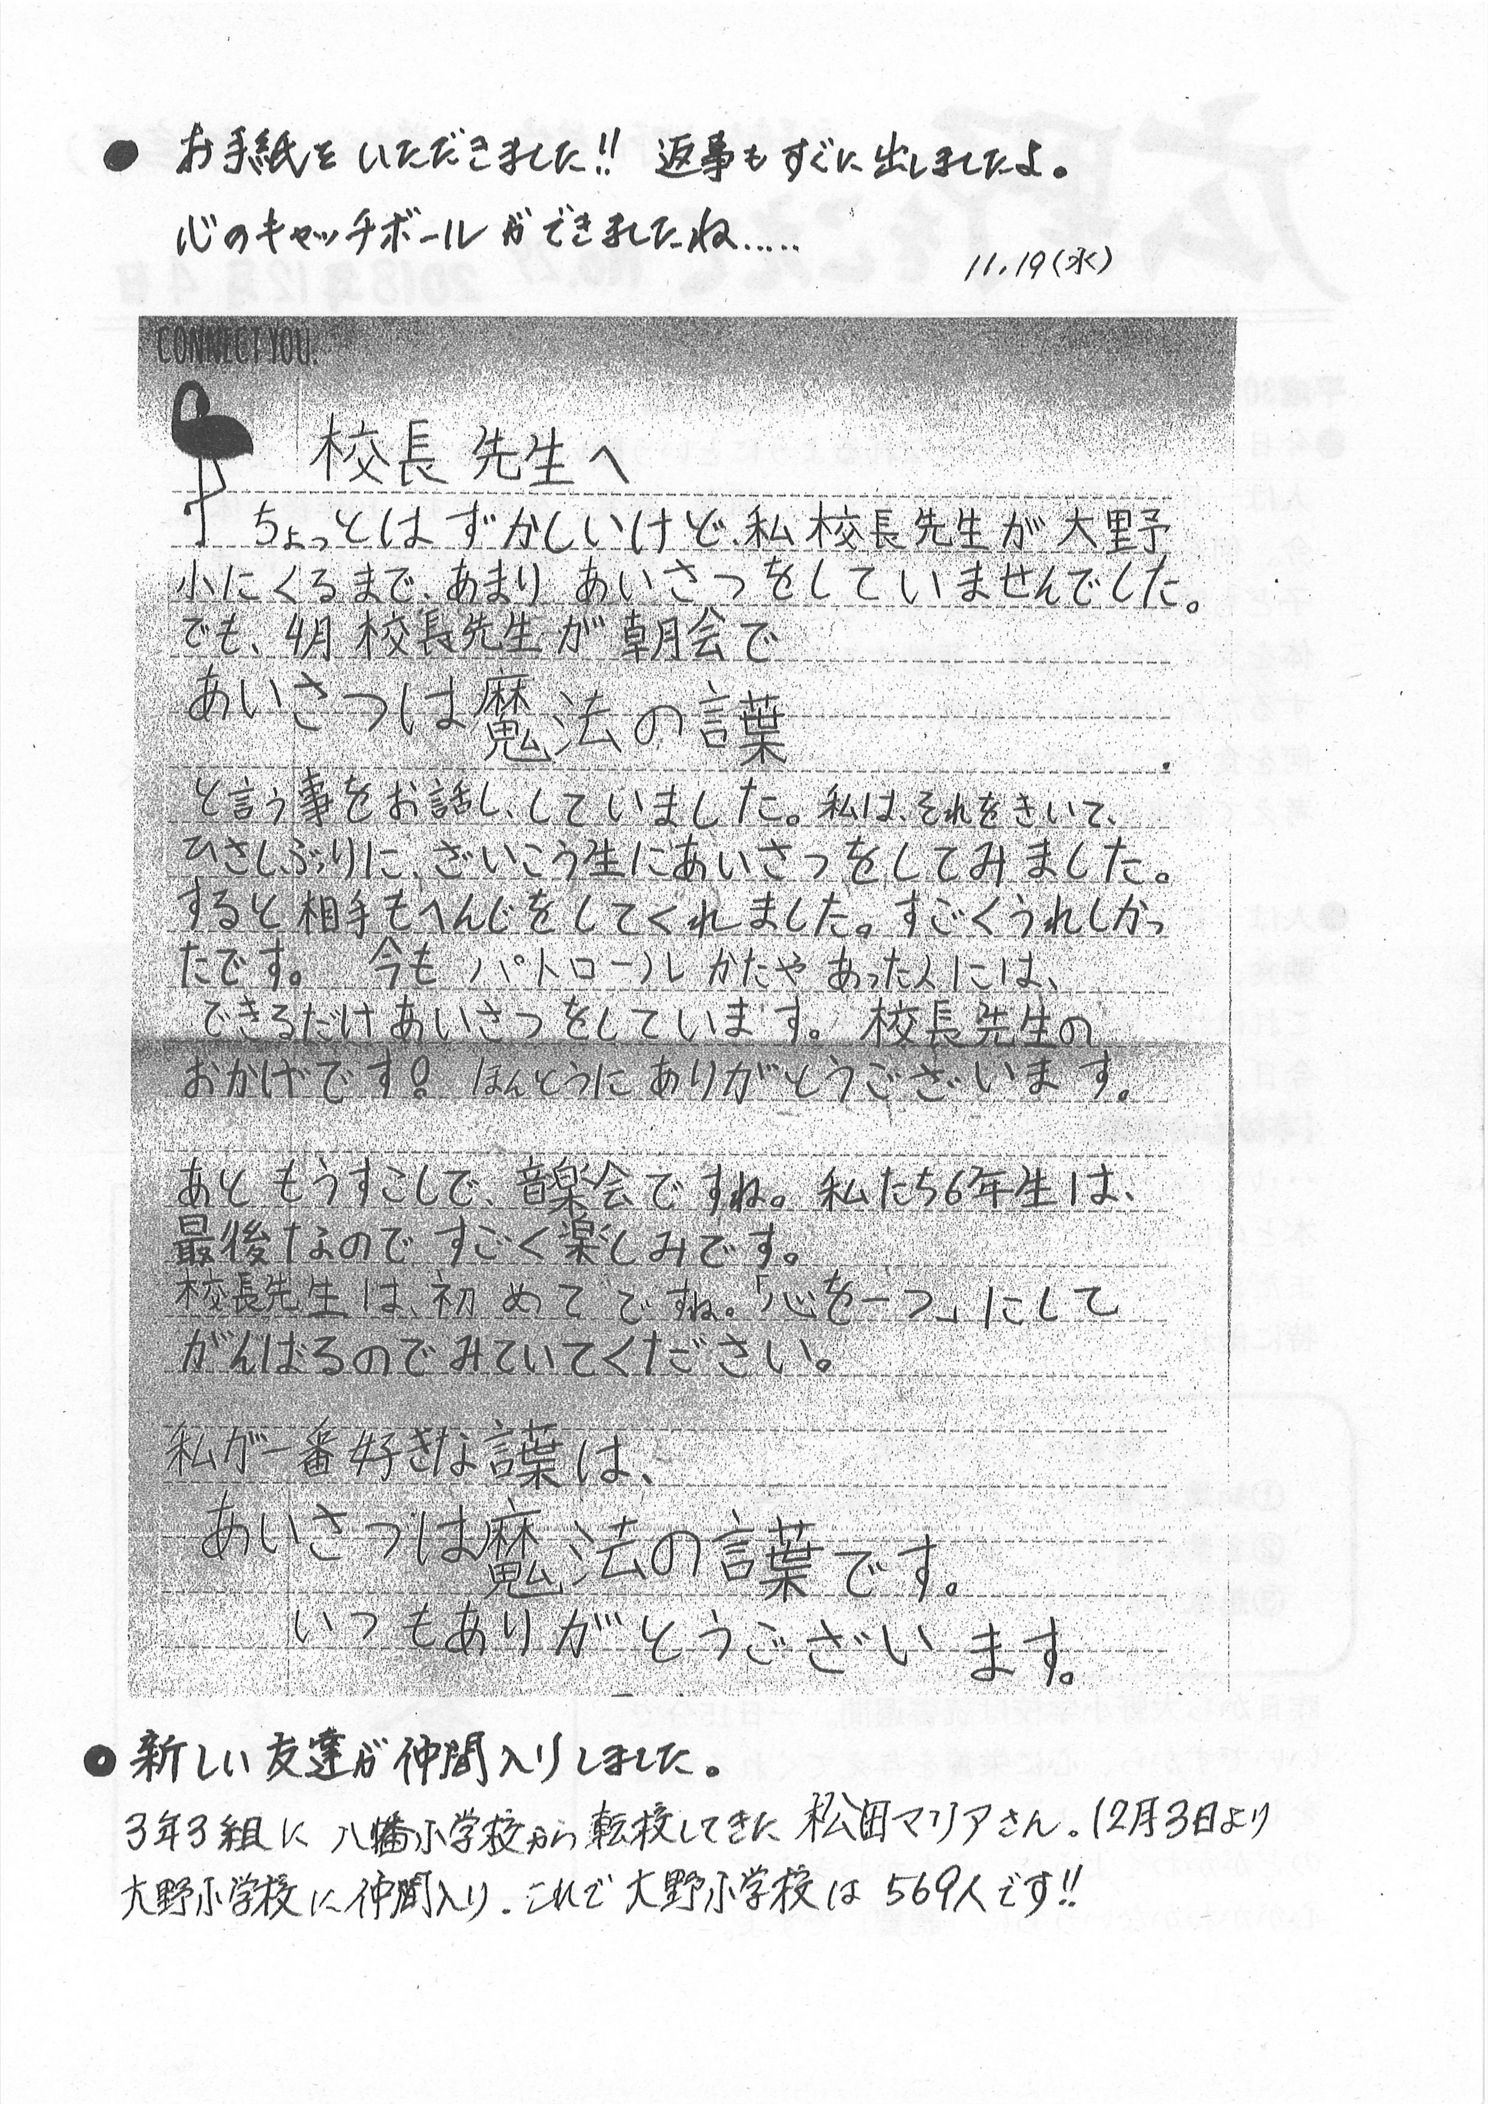 ● お手紙をいただきました!! 返事もすぐに出しましたよ。
心のキャッチボールができましたね.....
11.19(水)
CONNECT YOU.
校長先生へ
ちょっとはずかしいけど、私校長先生が大野
小にくるまで、あまりあいさつをしていませんでした。
でも、4月校長先生が朝会で
あいさつは魔法の言葉
と言う事をお話し、していました。私は、それをきいて、
ひさしぶりに、ざいこう生にあいさつをしてみました。
すると相手もへんじをしてくれました。すごくうれしかっ
たです。 今もパトロールかたやあった人には、
できるだけあいさつをしています。 校長先生の
おかげです! ほんとうにありがとうございます。
あともうすこしで、音楽会ですね。私たち6年生は、
最後なのですごく楽しみです。
校長先生は、初めてですね。「心を一つ」にして
がんばるのでみていてください。
私が一番好きな言葉は、
あいさつは魔法の言葉です。
いつもありがとうございます。
● 新しい友達が仲間入りしました。
3年3組に八幡小学校から転校してきた松田マリアさん。12月3日より
大野小学校に仲間入り。これで大野小学校は569人です!!